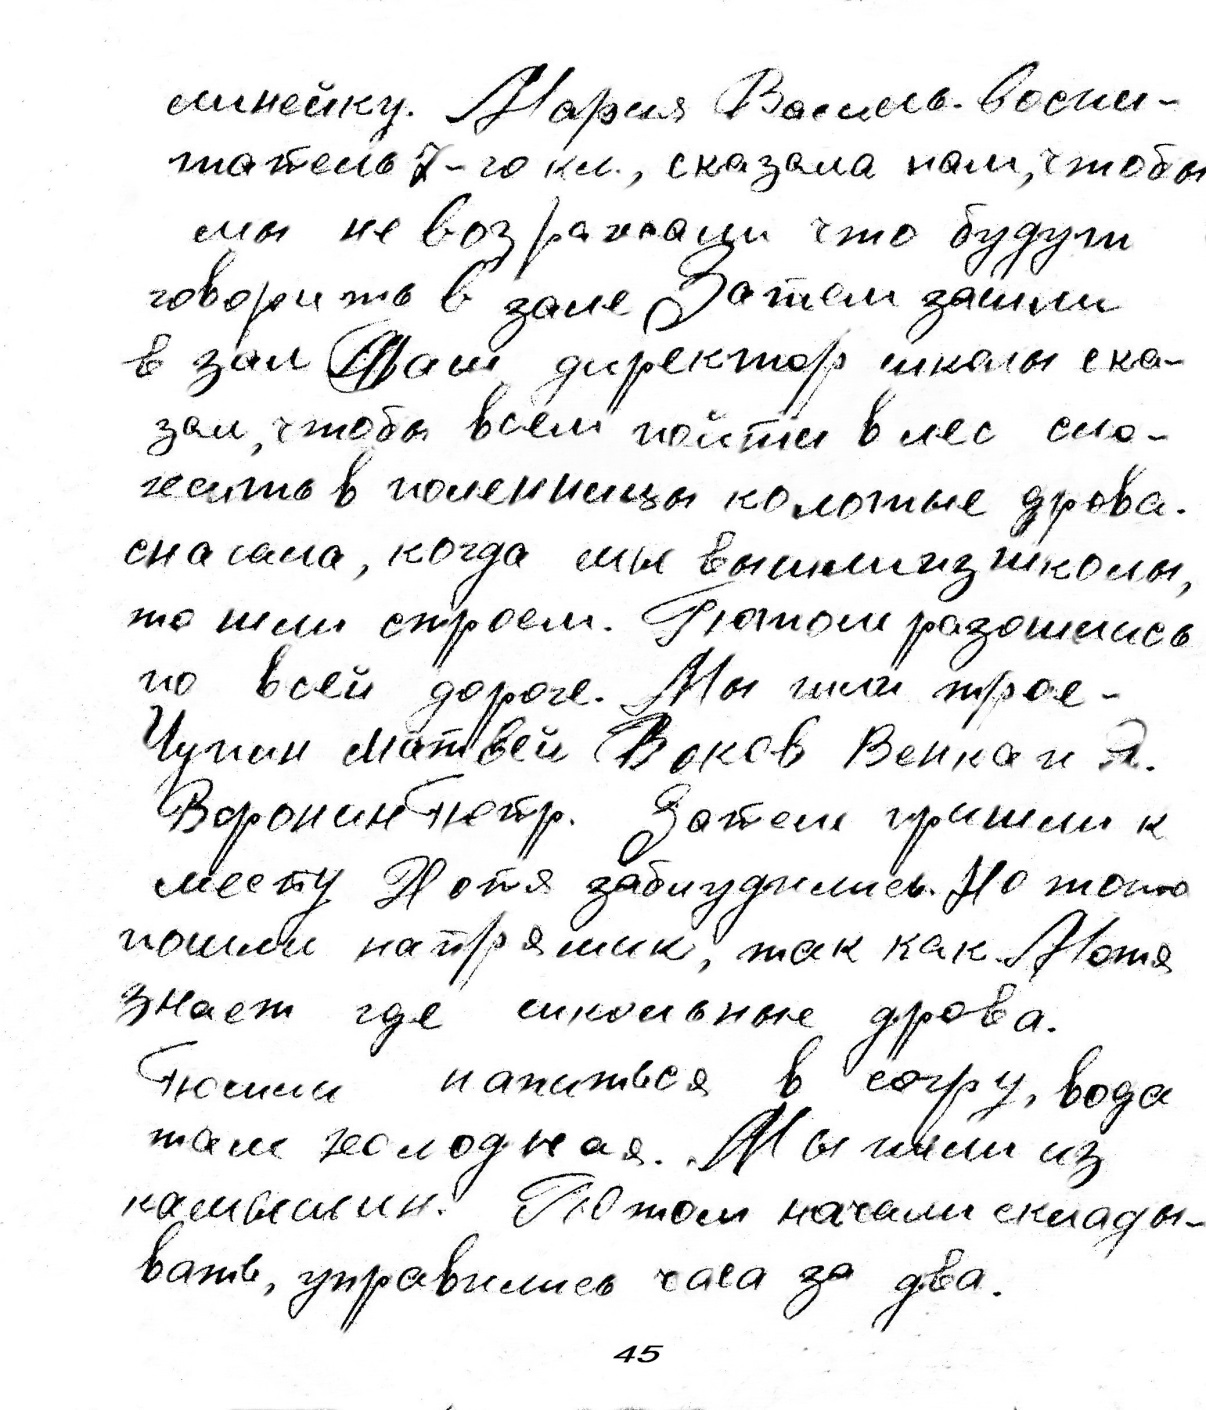 линейку. Мария Василь. воспи-
татель 7-го кл., сказала нам, чтобы
мы не возражали что будут
говорить в зале Затем зашли
в зал Наш директор школы ска-
зал, чтобы всем пойти в лес сло-
жить в поленницы колотые дрова.
сначала, когда мы вышли из школы,
то шли строем. Потом разошлись
по всей дороге. Мы шли трое -
Чупин Матвей Воков Венка и Я.
Воронин Пётр. Затем пришли к
месту Хотя заблудились. Но
пошли напрямик, так как Мотя
знает где школьные дрова.
Пошли напиться в согру, вода
там холодная. Мы пили из
камышин. Потом начали склады-
вать, управились часа за два.
45